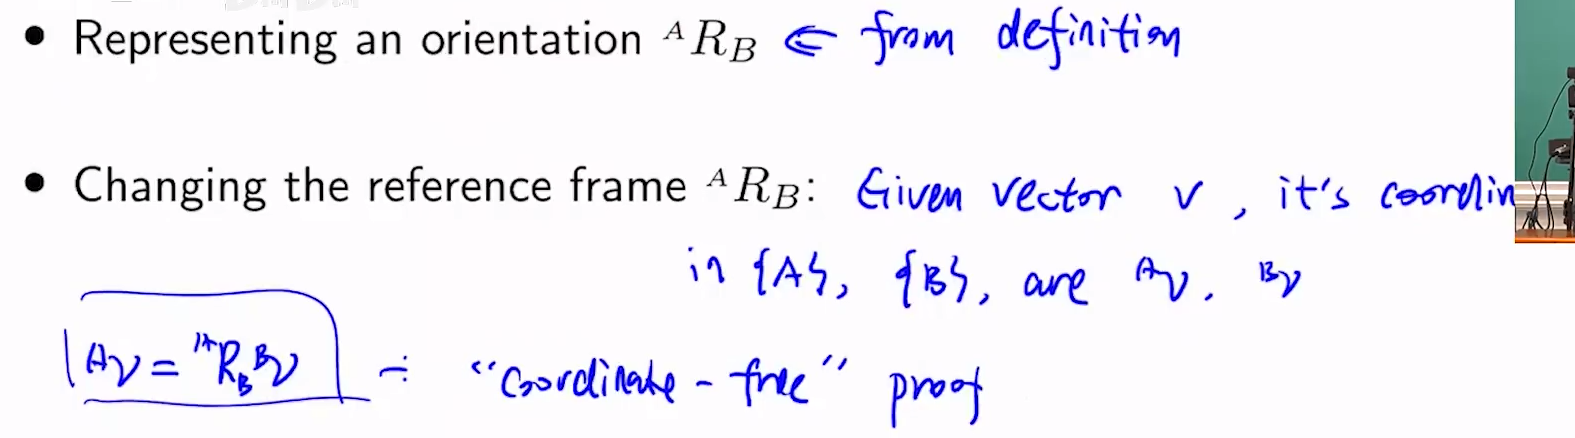 • Representing an orientation ᴬR_B ⇐ from definition
• Changing the reference frame ᴬR_B: Given vector v, it's coordin
in {A}, {B}, are ᴬv, ᴮv
ᴬv = ᴬR_B ᴮv ÷ "Coordinate-free" proof